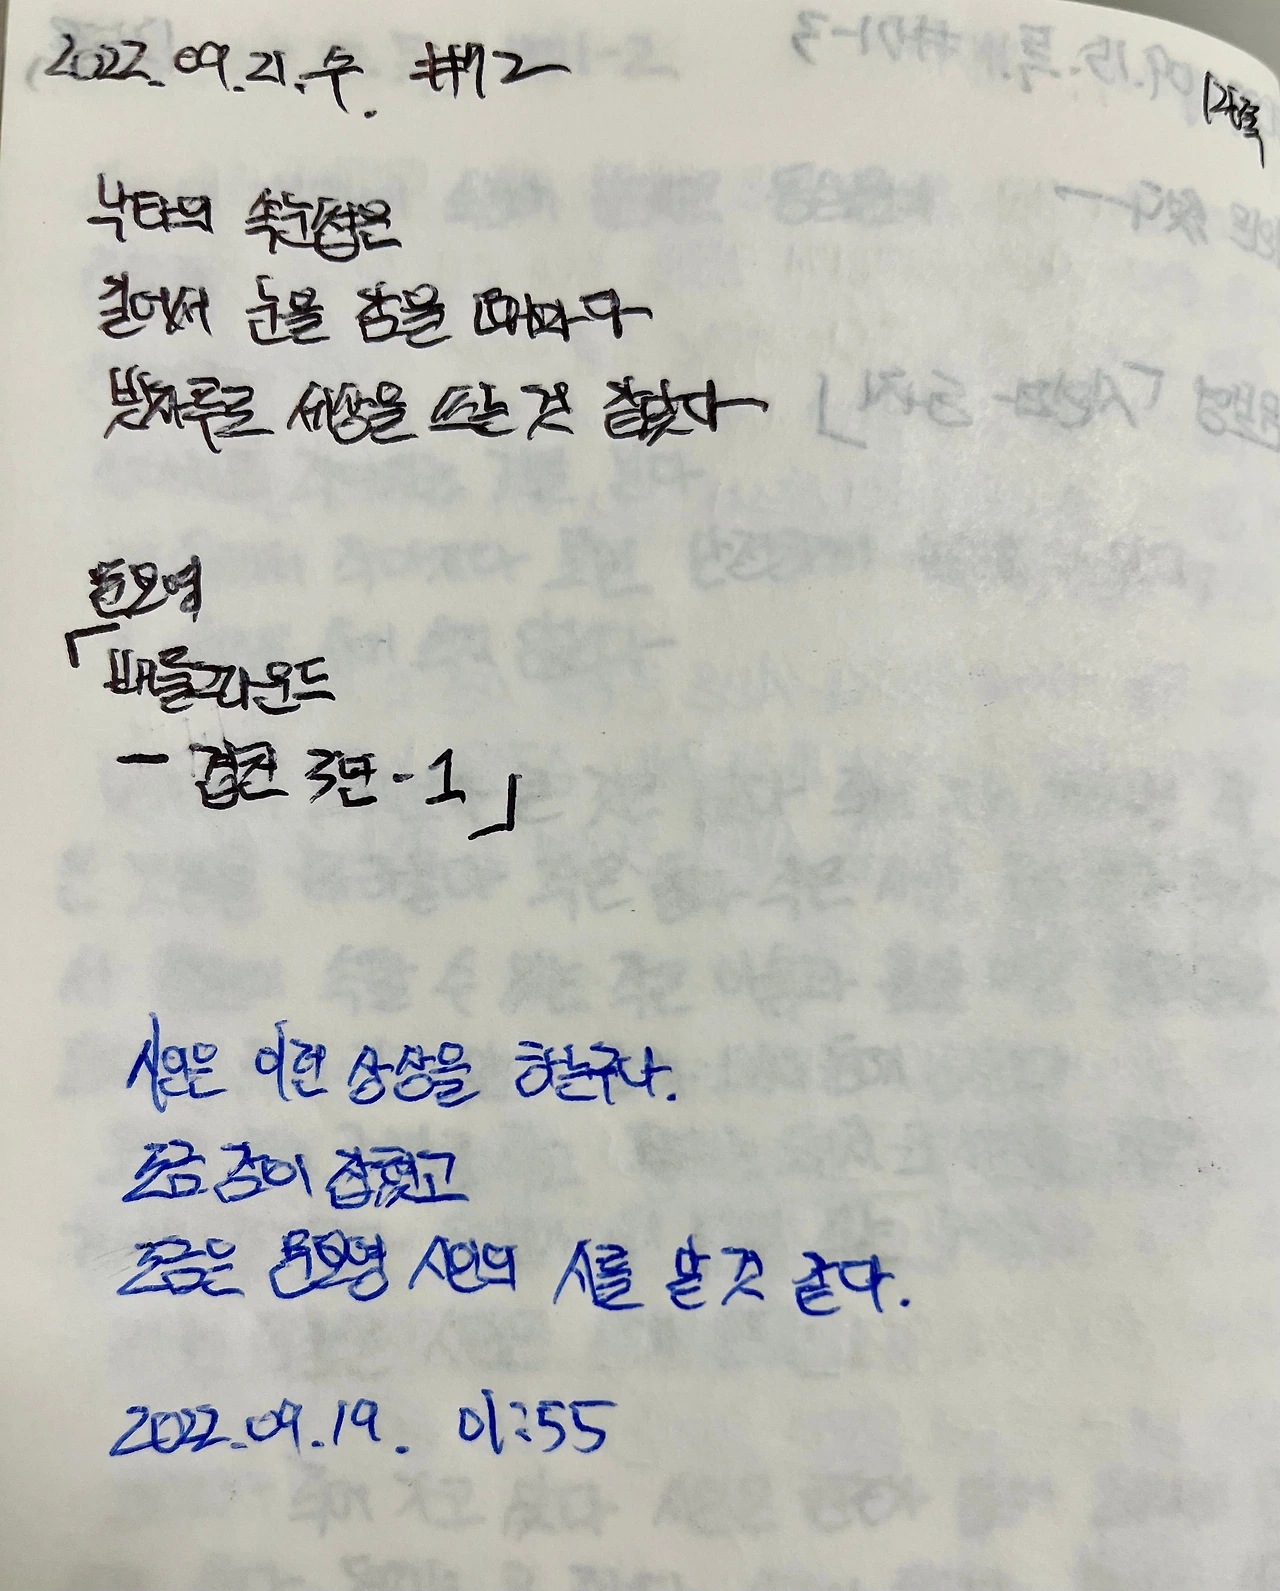 2022.09.21.수. #72
낙타의 속눈썹은
길어서 눈물 감을 때마다
빗자루로 세상을 쓰는 것 같았다
문보영
『배틀그라운드
- 검진 3만-1』
시인은 이런 상상을 하는구나.
조금 감이 잡혔고
조금은 문보영 시인의 시를 알 것 같다.
2022.09.19. 01:55